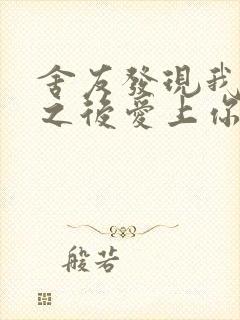 舍友發現我
之後愛上你
般若